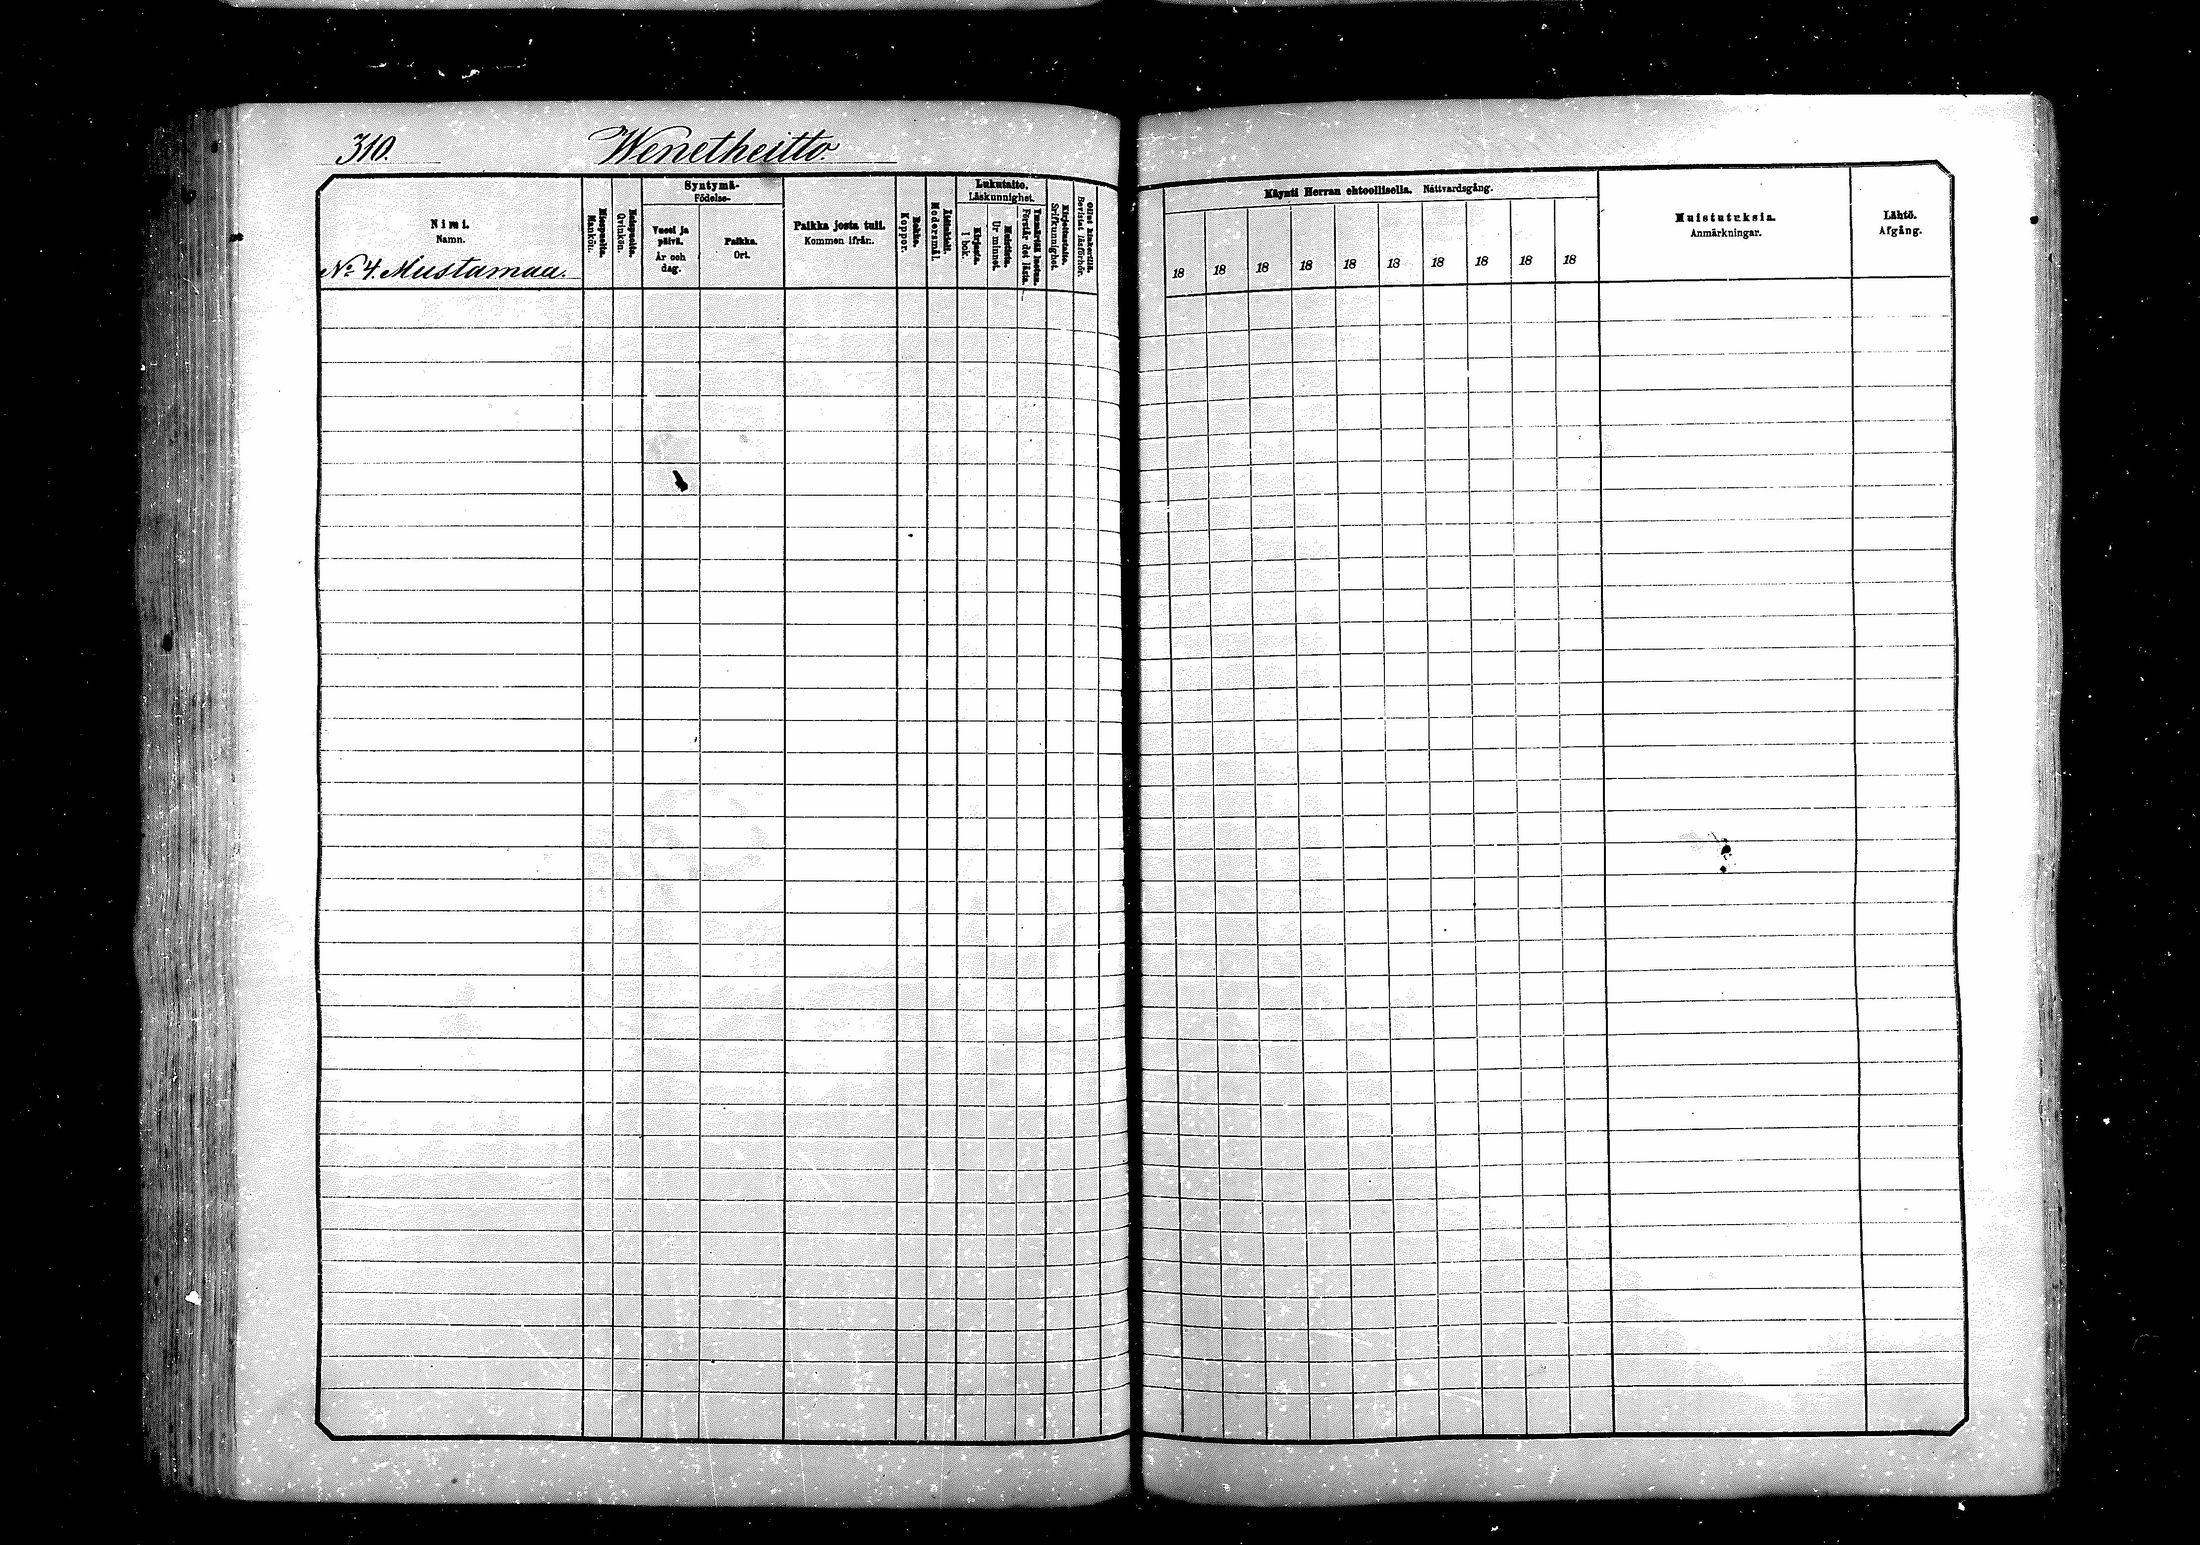 310. Wenetheitto.
Nimi.
Namn.
No 4. Mustamaa.
Miespuolia.
Mankön.
Vaimopuolia.
Qvinkön.
Syntymä-
Födelse-
Vuosi ja
päivä.
År och
dag.
Paikka.
Ort.
Paikka josta tuli.
Kommen ifrån.
Rokko.
Koppor.
Äidinkieli.
Modersmål.
Lukutaito.
Läskunnighet.
Kirjasta.
I bok.
Muistista.
Ur minnet.
Ymmärtää luetun.
Förstår det lästa.
Kirjoitustaito.
Srifkunnighet.
Ollut kinkerillä.
Bevistat läsförhör.
Käynti Herran ehtoollisella. Nattvardsgång.
18 18 18 18 18 18 18 18 18 18
Muistutuksia.
Anmärkningar.
Lähtö.
Afgång.